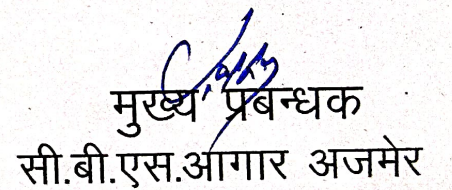 मुख्य प्रबन्धक
सी.बी.एस.आगार अजमेर